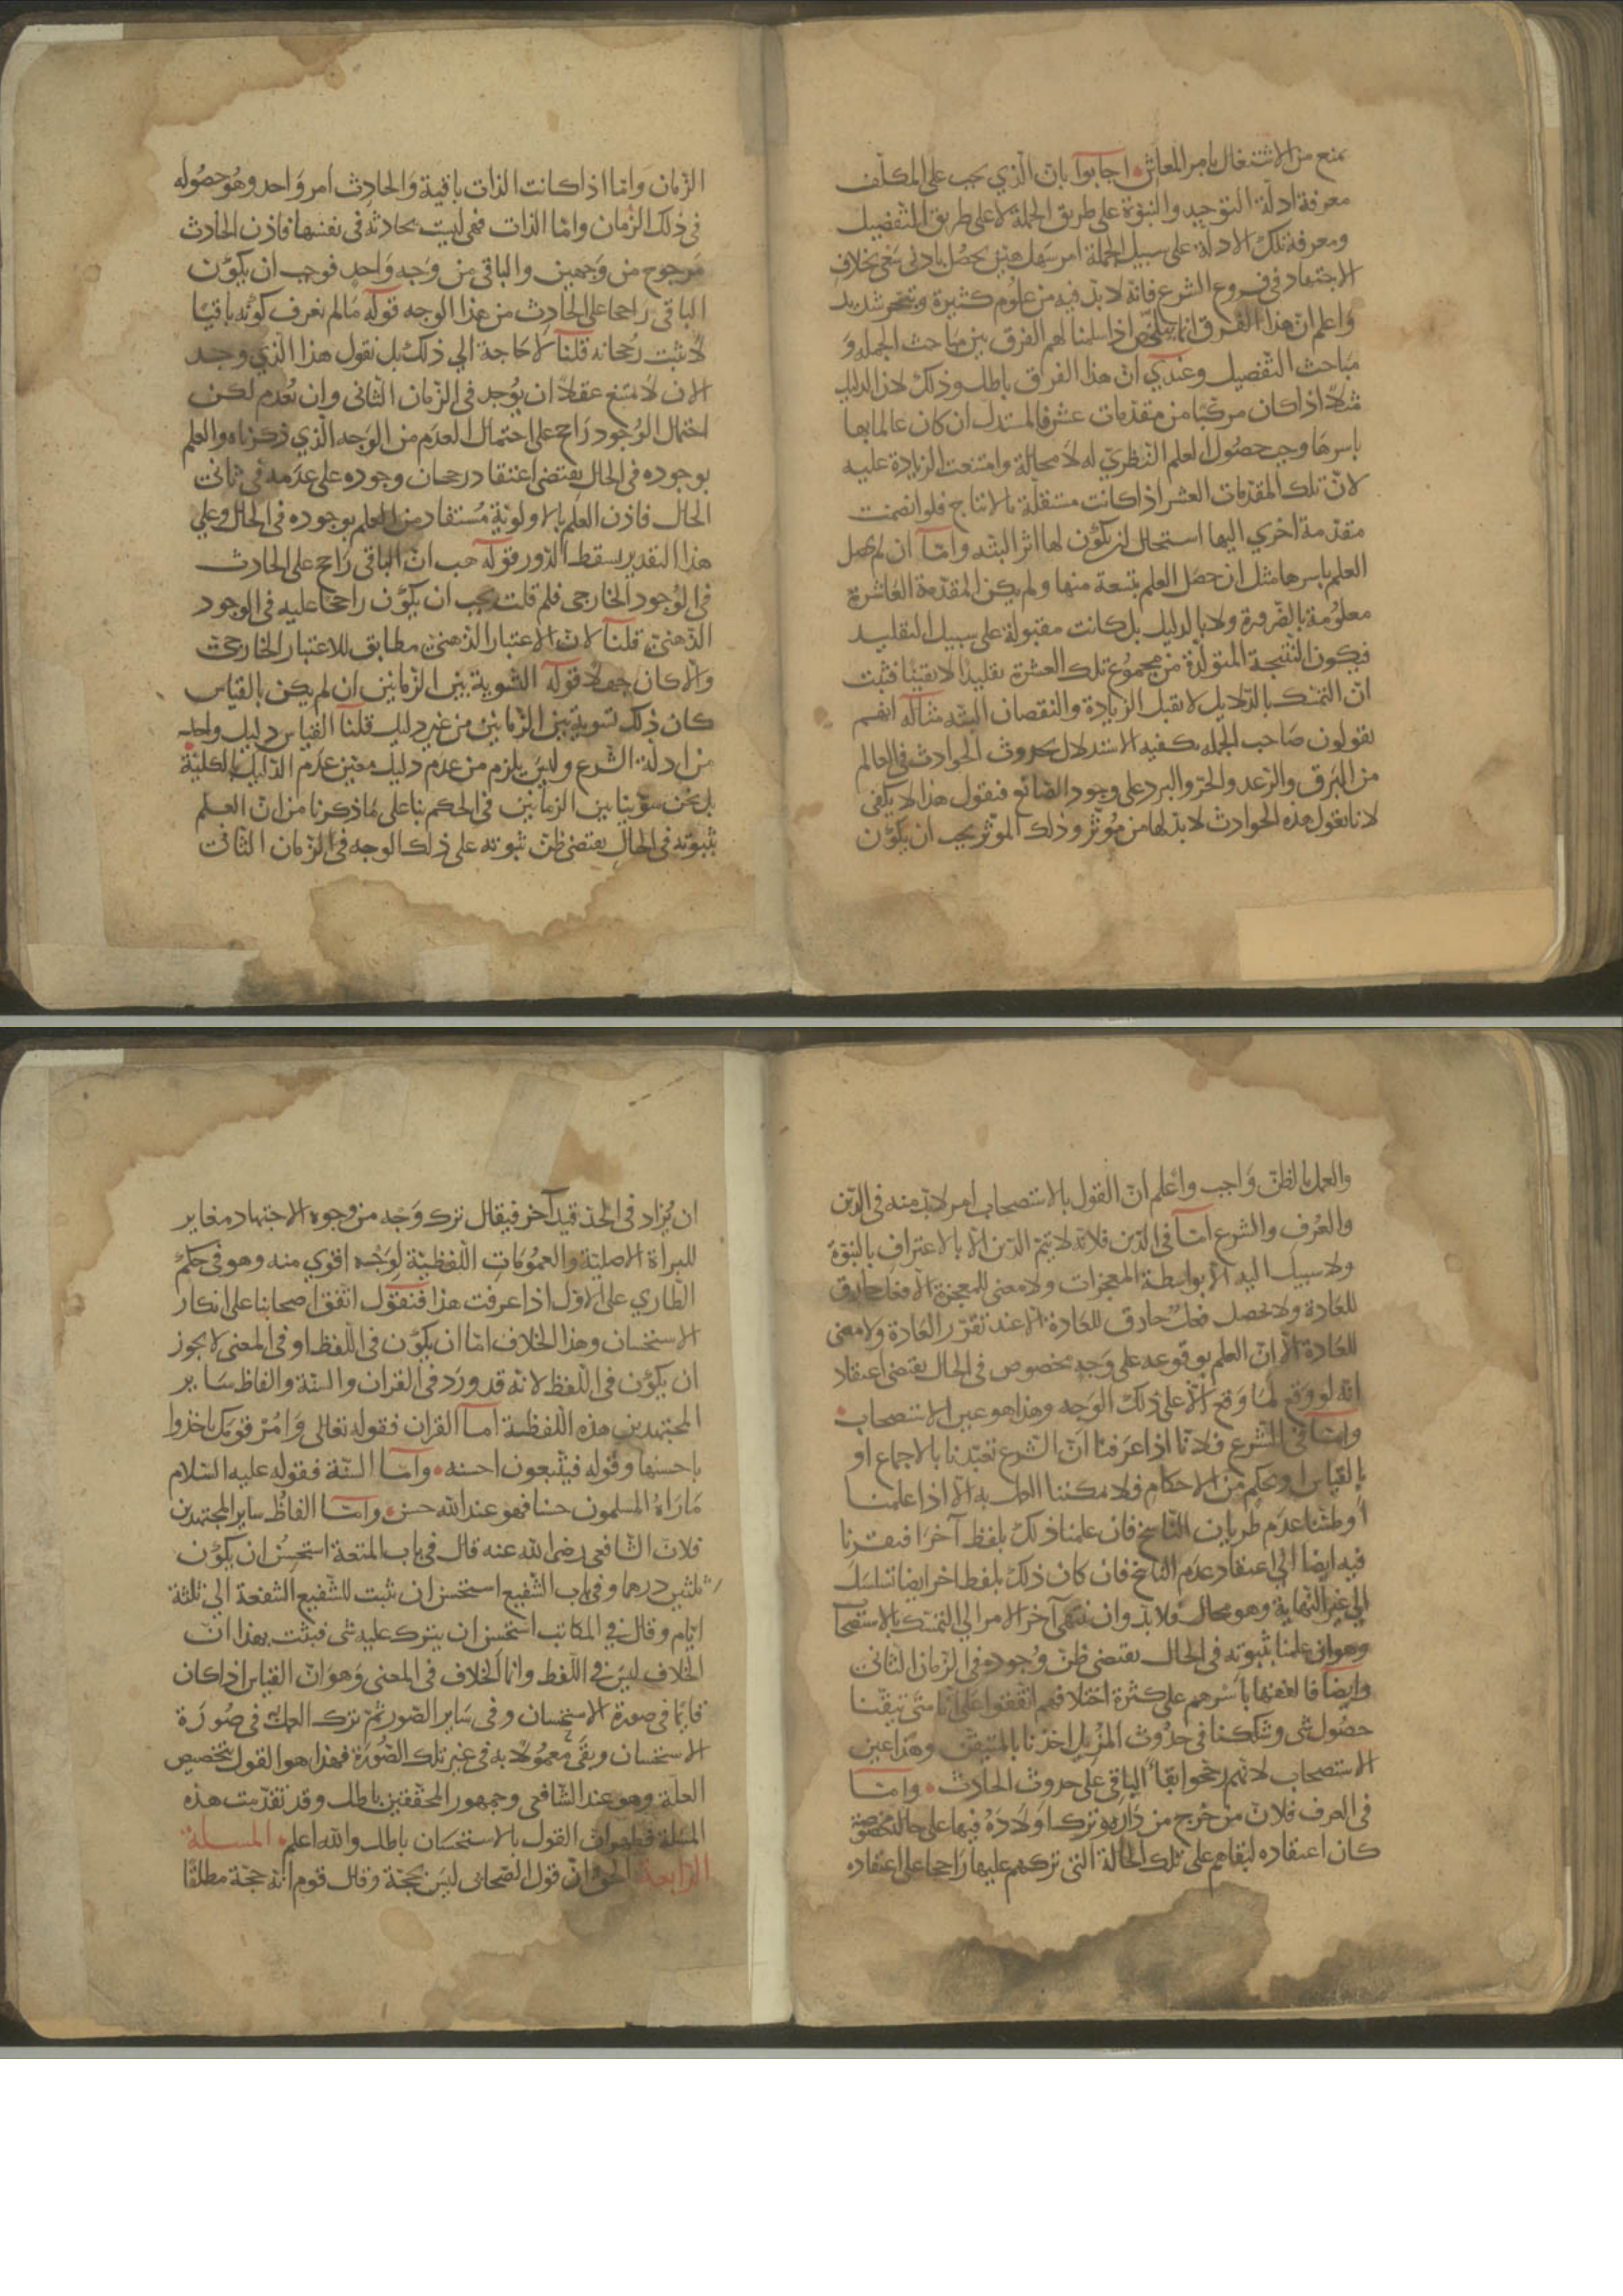 يمنع من الاشتغال بامر المعاش اجابوا بان الذي يجب على المكلف
معرفة ادلة التوحيد والنبوة على طريق الجملة لا على طريق التفصيل
ومعرفة تلك الادلة على سبيل الجملة امر سهل هين يحصل بادنى سعى بخلاف
الاجتهاد في فروع الشرع فانه لا بد فيه من علوم كثيرة وتبحر شديد
واعلم ان هذا الفرق انما يتلخص اذا سلمنا لهم الفرق بين مباحث الجمله و
مباحث التفصيل وعندي ان هذا الفرق باطل وذلك لان الدليل
مثلا اذا كان مركبا من مقدمات عشر فالمستدل ان كان عالما بها
باسرها وجب حصول العلم النظري له لا محالة وامتنعت الزيادة عليه
لان تلك المقدمات العشر اذا كانت مستقلة بالانتاج فلو انضمت
مقدمة اخري اليها استحال ان يكون لها اثر البته واما ان لم يحصل
العلم باسرها مثل ان حصل العلم بتسعة منها ولم يكن المقدمة العاشرة
معلومة بالضرورة ولا بالدليل بل كانت مقبولة على سبيل التقليد
فيكون النتيجة المتولدة من مجموع تلك العشرة تقليدا لا يقينا فثبت
ان التمسك بالدلايل لا يقبل الزيادة والنقصان البته مثاله انهم
يقولون صاحب الجمله يكفيه الاستدلال بحدوث الحوادث في العالم
من البرق والرعد والحر والبرد على وجود الصانع فنقول هذا لا يكفي
لانا نقول هذه الحوادث لا بد لها من مؤثر وذلك الموثر يجب ان يكون
الزمان واما اذا كانت الذات باقية والحادث امر واحد وهو حصوله
في ذلك الزمان واما الذات فهى ليست بحادثة في نفسها فاذن الحادث
مرجوح من وجهين والباقى من وجه واحد فوجب ان يكون
الباقى راجحا على الحادث من هذا الوجه قوله ما لم نعرف كونه باقيا
لا يثبت رجحانه قلنا لا حاجة الى ذلك بل نقول هذا الذي وجد
الان لا يمتنع عقلا ان يوجد في الزمان الثانى وان يعدم لكن
احتمال الوجود راجح على احتمال العدم من الوجه الذي ذكرناه والعلم
بوجوده في الحال يقتضى اعتقاد رجحان وجوده على عدمه في ثانى
الحال فاذن العلم بالاولوية مستفاد من العلم بوجوده في الحال وعلى
هذا التقدير يسقط الدور قوله هب ان الباقى راجح على الحادث
في الوجود الخارجي فلم قلت يجب ان يكون راجحا عليه في الوجود
الذهنى قلنا لان الاعتبار الذهنى مطابق للاعتبار الخارجى
والا كان جهلا قوله التسوية بين الزمانين ان لم يكن بالقياس
كان ذلك تسوية بين الزمانين من غير دليل قلنا القياس دليل واحد
من ادلة الشرع وليس يلزم من عدم دليل معين عدم الدليل بالكلية
بل نحن سوينا بين الزمانين في الحكم بنا على ما ذكرنا من ان العلم
بثبوته في الحال يقتضى ظن ثبوته على ذلك الوجه في الزمان الثانى
والعمل بالظن واجب واعلم ان القول بالاستصحاب امر لا بد منه في الدين
والعرف والشرع اما في الدين فلانه لا يتم الدين الا بالاعتراف بالنبوة
ولا سبيل اليه الا بواسطة المعجزات ولا معنى للمعجزة الا فعل خارق
للعادة ولا يحصل فعل خارق للعادة الا عند تقرر العادة ولا معنى
للعادة الا ان العلم بوقوعه على وجه مخصوص في الحال يقتضى اعتقاد
انه لو وقع لما وقع الا على ذلك الوجه وهذا هو عين الاستصحاب
واما في الشرع فلانا اذا عرفنا ان الشرع تعبدنا بالاجماع او
بالقياس او بحكم من الاحكام فلا يمكننا العمل به الا اذا علمنا
او ظننا عدم طريان الناسخ فان علمنا ذلك بلفظ آخر افتقرنا
فيه ايضا الى اعتقاد عدم الناسخ فان كان ذلك بلفظ اخر ايضا تسلسل
الى غير النهاية وهو محال فلا بد وان ينتهى آخر الامر الى التمسك بالاستصحاب
وهو ان علمنا بثبوته في الحال يقتضى ظن وجوده في الزمان الثانى
وايضا فالفقها باسرهم على كثرة اختلافهم اتفقوا على انا متى تيقنا
حصول شى وشككنا في حدوث المزيل اخذنا بالمتيقن وهذا عين
الاستصحاب لانهم رجحوا بقاء الباقى على حدوث الحادث واما
في العرف فلان من خرج من داره وترك اولاده فيها على حالة مخصوصة
كان اعتقاده لبقاهم على تلك الحالة التى تركهم عليها راجحا على اعتقاده
ان يزاد في الحد قيد آخر فيقال ترك وجه من وجوه الاجتهاد مغاير
للبراة الاصلية والعمومات اللفظية لوجه اقوي منه وهو في حكم
الطاري على الاول اذا عرفت هذا فنقول اتفق اصحابنا على انكار
الاستحسان وهذا الخلاف اما ان يكون في اللفظ او في المعنى لا يجوز
ان يكون في اللفظ لانه قد ورد في القران والسنة والفاظ ساير
المجتهدين هذه اللفظية اما القران فقوله تعالى وامر قومك ياخذوا
باحسنها وقوله فيتبعون احسنه واما السنة فقوله عليه السلام
ما راه المسلمون حسنا فهو عند الله حسن واما الفاظ ساير المجتهدين
فلان الشافعى رضى الله عنه قال في باب المتعة استحسن ان يكون
ثلثين درهما وفي باب الشفيع استحسن ان يثبت للشفيع الشفعة الى ثلثة
ايام وقال في المكاتب استحسن ان يترك عليه شى فثبت بهذا ان
الخلاف ليس في اللفظ وانما الخلاف في المعنى وهو ان القياس اذا كان
قايما في صورة الاستحسان وفي ساير الصور ثم ترك العمل به في صورة
الاستحسان وبقى معمولا به في غير تلك الصورة فهذا هو القول بتخصيص
العلة وهو عند الشافعى وجمهور المحققين باطل وقد تقدمت هذه
المسلة فظهر ان القول بالاستحسان باطل والله اعلم المسلة
الرابعة الحق ان قول الصحابى ليس بحجة وقال قوم انه حجة مطلقا